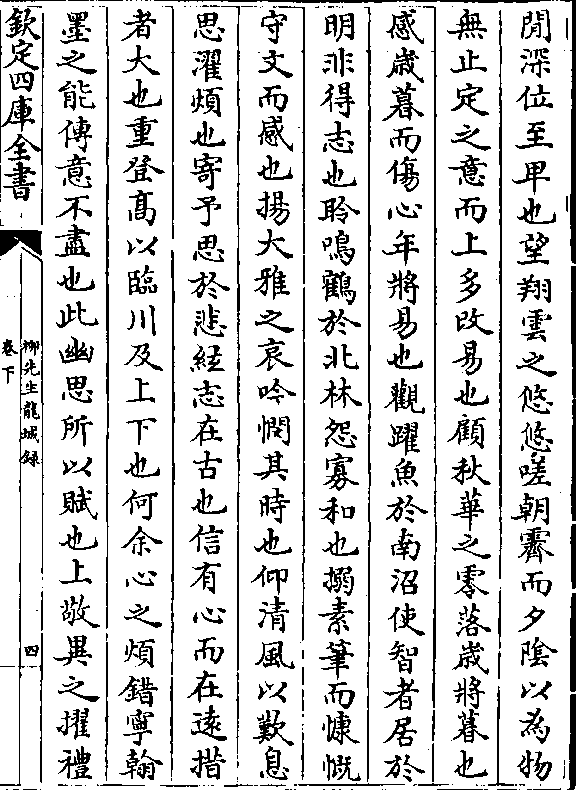 閒深位至卑也望翔雲之悠悠嗟朝霽而夕陰以為物
無止定之意而上多改易也顧秋華之零落歳將暮也
感歳暮而傷心年將易也觀躍魚於南沼使智者居於
明非得志也聆鳴鶴於北林怨寡和也搦素筆而慷慨
守文而感也揚大雅之哀吟憫其時也仰清風以歎息
思濯煩也寄予思於悲絃志在古也信有心而在遠措
者大也重登髙以臨川及上下也何余心之煩錯寧翰
墨之能傳意不盡也此幽思所以賦也上敬異之擢禮
欽定四庫全書
柳先生龍城録
卷下
四